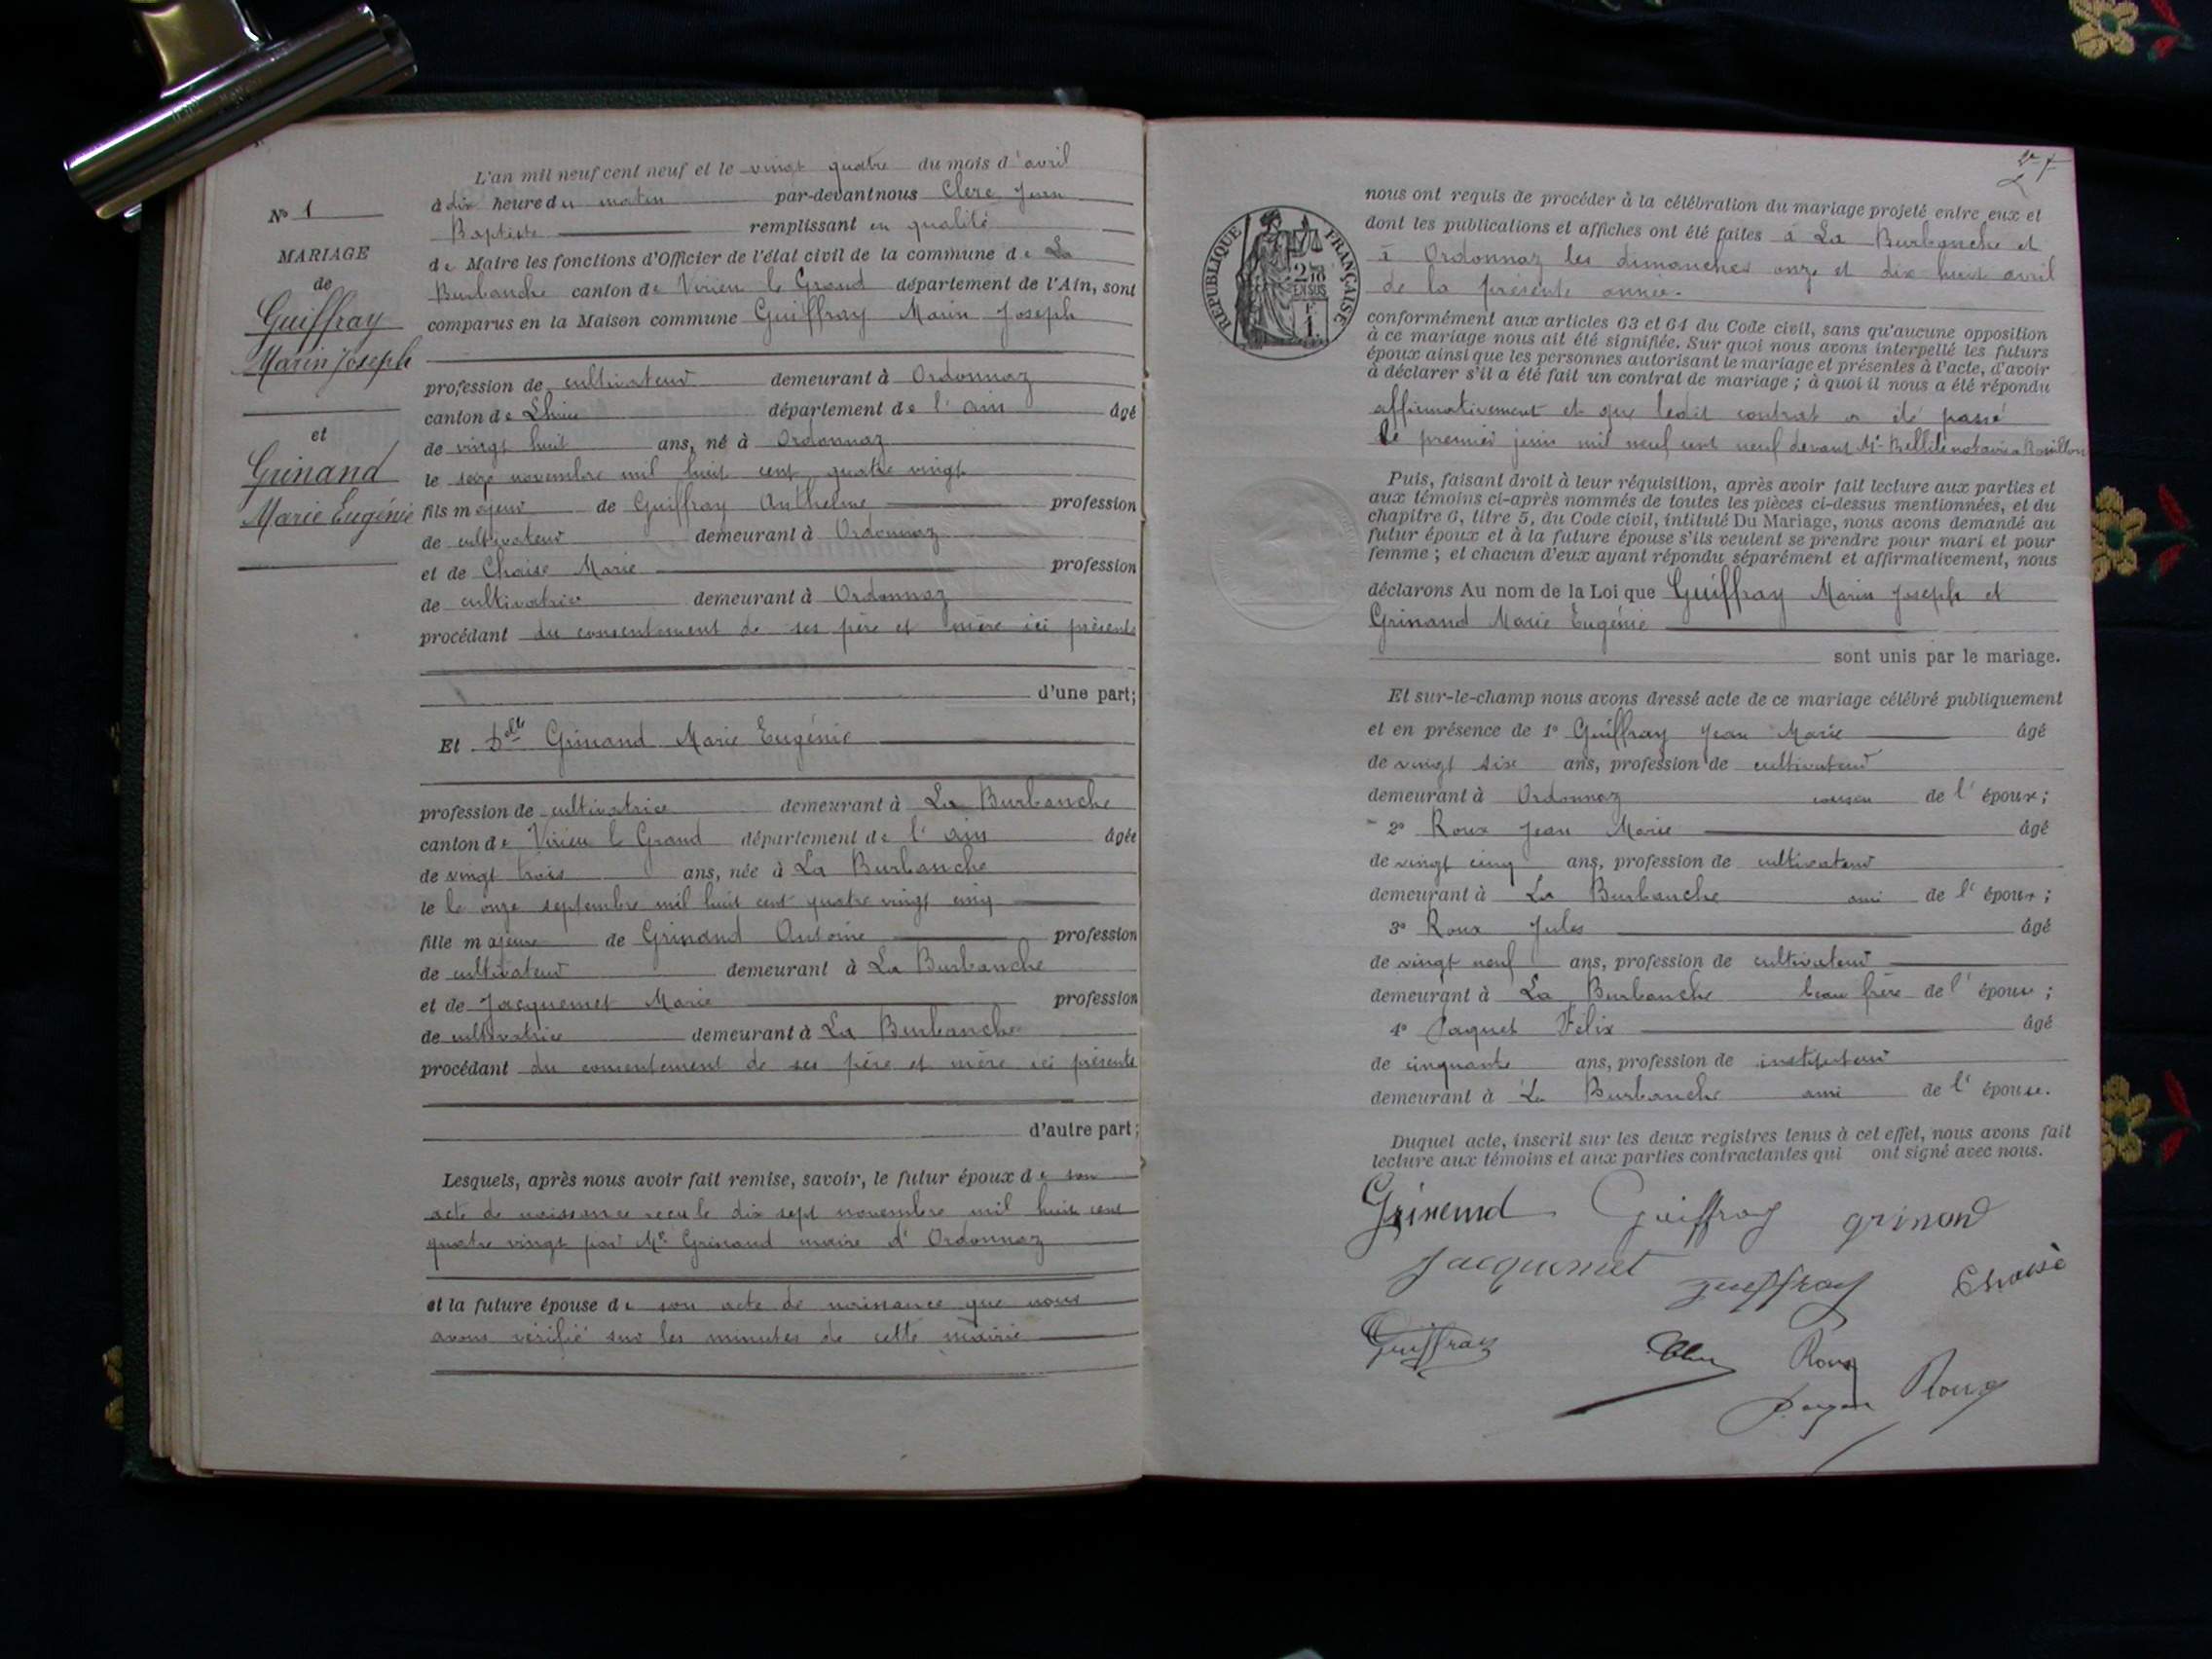 N° 1
MARIAGE
de
Guiffray
Marin Joseph
et
Grinand
Marie Eugénie
L'an mil neuf cent neuf et le vingt quatre du mois d'avril
à dix heure du matin par-devant nous Clerc Jean
Baptiste remplissant en qualité
de Maire les fonctions d'Officier de l'état civil de la commune de La
Burbanche canton de Virieu le Grand département de l'Ain, sont
comparus en la Maison commune Guiffray Marin Joseph
profession de cultivateur demeurant à Ordonnaz
canton de Lhuis département de l'ain âgé
de vingt huit ans, né à Ordonnaz
le seize novembre mil huit cent quatre vingt
fils majeur de Guiffray Anthelme profession
de cultivateur demeurant à Ordonnaz
et de Chaise Marie profession
de cultivatrice demeurant à Ordonnaz
procédant du consentement de ses père et mère ici présents
d'une part;
Et Delle Grinand Marie Eugénie
profession de cultivatrice demeurant à La Burbanche
canton de Virieu le Grand département de l'ain âgée
de vingt trois ans, née à La Burbanche
le le onze septembre mil huit cent quatre vingt cinq
fille majeure de Grinand Antoine profession
de cultivateur demeurant à La Burbanche
et de Jacquemet Marie profession
de cultivatrice demeurant à La Burbanche
procédant du consentement de ses père et mère ici présents
d'autre part;
Lesquels, après nous avoir fait remise, savoir, le futur époux de son
acte de naissance reçu le dix sept novembre mil huit cent
quatre vingt par Mr Grinand maire d'Ordonnaz
et la future épouse de son acte de naissance que nous
avons vérifié sur les minutes de cette mairie
RÉPUBLIQUE FRANÇAISE
2/10 EN SUS
1F
nous ont requis de procéder à la célébration du mariage projeté entre eux et
dont les publications et affiches ont été faites à La Burbanche et
à Ordonnaz les dimanches onze et dix huit avril
de la présente année.
conformément aux articles 63 et 64 du Code civil, sans qu'aucune opposition
à ce mariage nous ait été signifiée. Sur quoi nous avons interpellé les futurs
époux ainsi que les personnes autorisant le mariage et présentes à l'acte, d'avoir
à déclarer s'il a été fait un contrat de mariage; à quoi il nous a été répondu
affirmativement et que ledit contrat a été passé
le premier juin mil neuf cent neuf devant Mr notaire à
Puis, faisant droit à leur réquisition, après avoir fait lecture aux parties et
aux témoins ci-après nommés de toutes les pièces ci-dessus mentionnées, et du
chapitre 6, titre 5, du Code civil, intitulé Du Mariage, nous avons demandé au
futur époux et à la future épouse s'ils veulent se prendre pour mari et pour
femme; et chacun d'eux ayant répondu séparément et affirmativement, nous
déclarons Au nom de la Loi que Guiffray Marin Joseph et
Grinand Marie Eugénie
sont unis par le mariage.
Et sur-le-champ nous avons dressé acte de ce mariage célébré publiquement
et en présence de 1° Guiffray Jean Marie âgé
de vingt six ans, profession de cultivateur
demeurant à Ordonnaz cousin de l'époux;
2° Roux Jean Marie âgé
de vingt cinq ans, profession de cultivateur
demeurant à La Burbanche ami de l'époux;
3° Roux Jules âgé
de vingt neuf ans, profession de cultivateur
demeurant à La Burbanche beau frère de l'épouse;
4° Paquet Félix âgé
de cinquante ans, profession de instituteur
demeurant à La Burbanche ami de l'épouse.
Duquel acte, inscrit sur les deux registres tenus à cet effet, nous avons fait
lecture aux témoins et aux parties contractantes qui ont signé avec nous.
Grinand Guiffray grinand
Jacquemet guiffray Chaise
Guiffray Clerc Roux
Paquet Roux